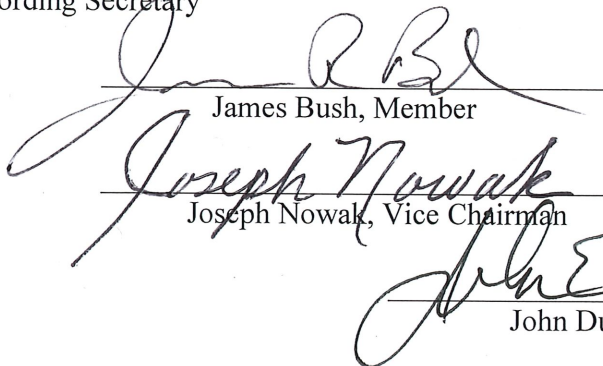 ording Secretary
James R B
James Bush, Member
Joseph Nowak
Joseph Nowak, Vice Chairman
John E
John Du